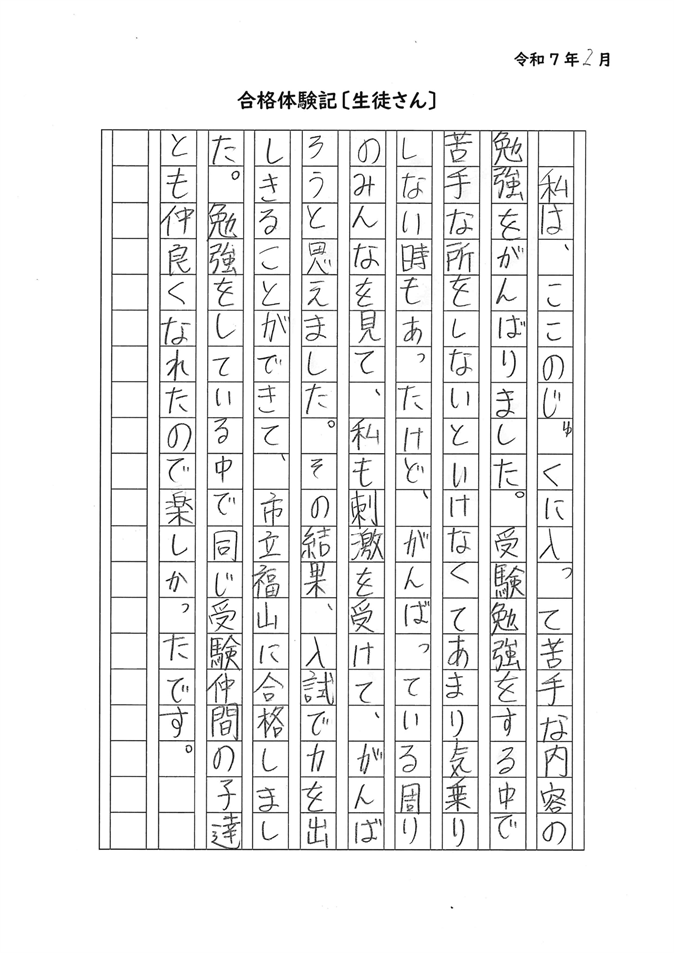 令和7年2月
合格体験記〔生徒さん〕
私は、ここのじゅくに入って苦手な内容の
勉強をがんばりました。受験勉強をする中で
苦手な所をしないといけなくてあまり気乗り
しない時もあったけど、がんばっている周り
のみんなを見て、私も刺激を受けて、がんば
ろうと思えました。その結果、入試で力を出
しきることができて、市立福山に合格しまし
た。勉強をしている中で同じ受験仲間の子達
とも仲良くなれたので楽しかったです。